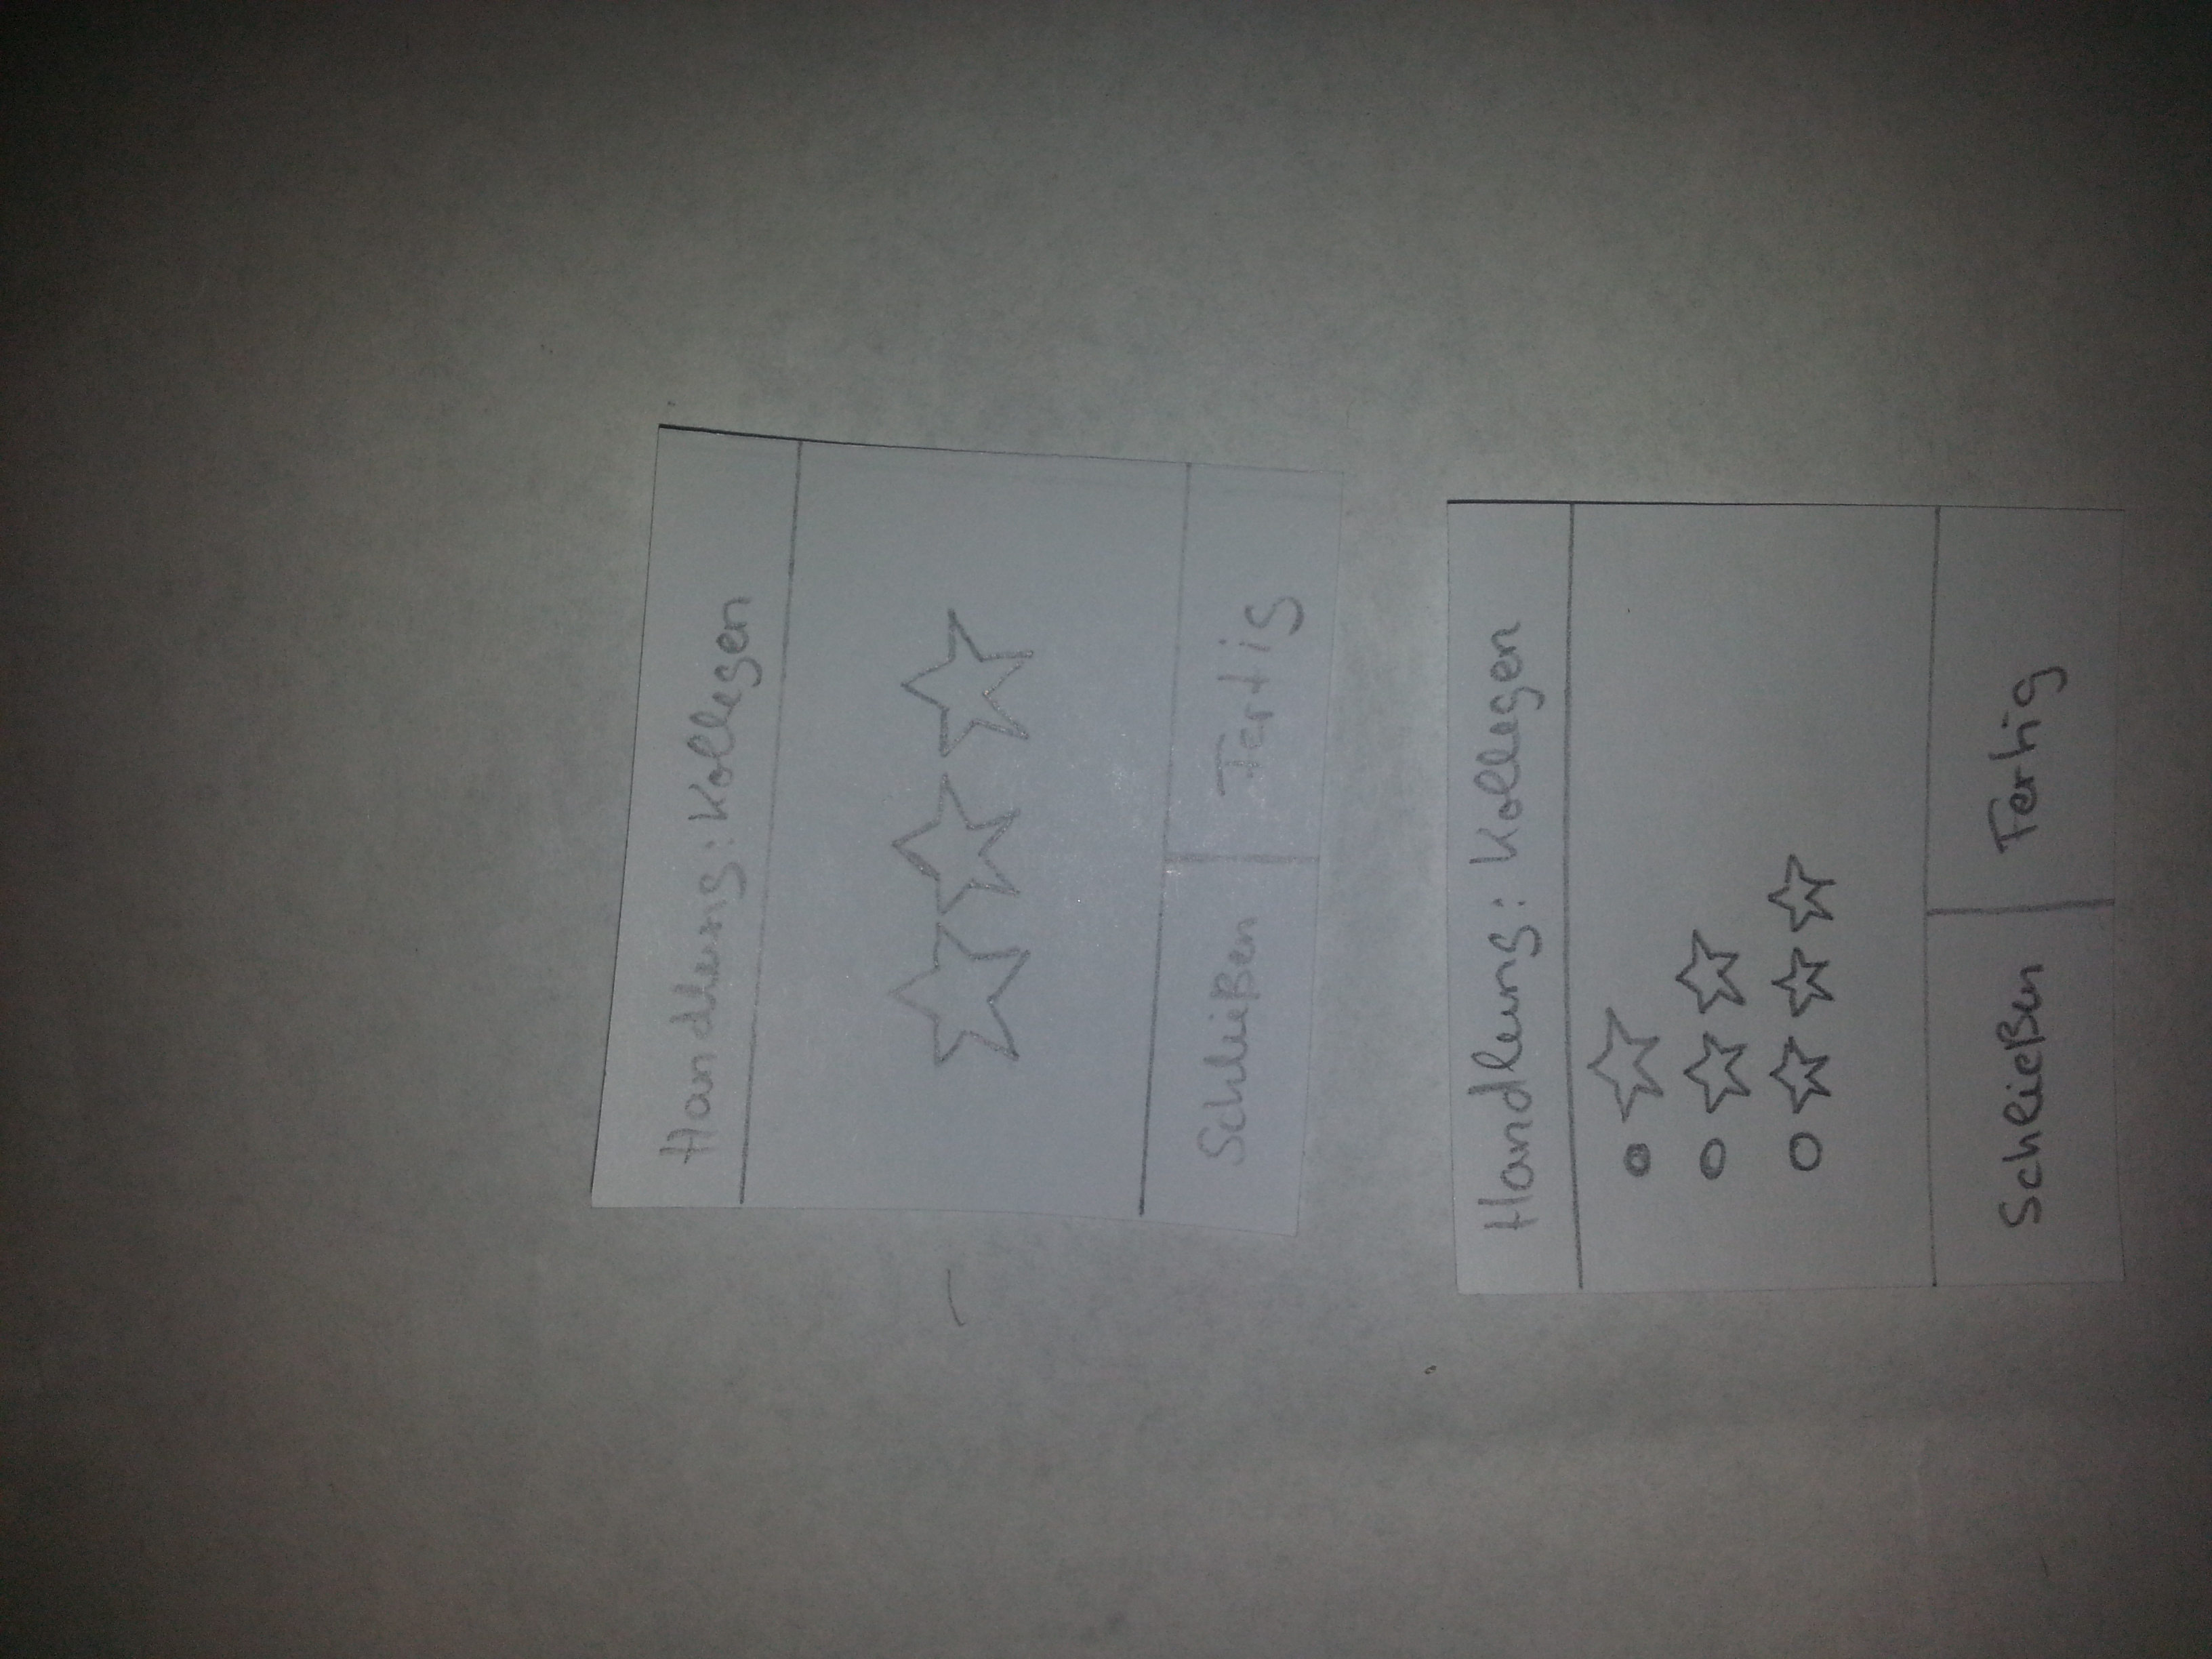 Handlung: Kollegen
Schließen Fertig
Handlung: Kollegen
Schließen Fertig